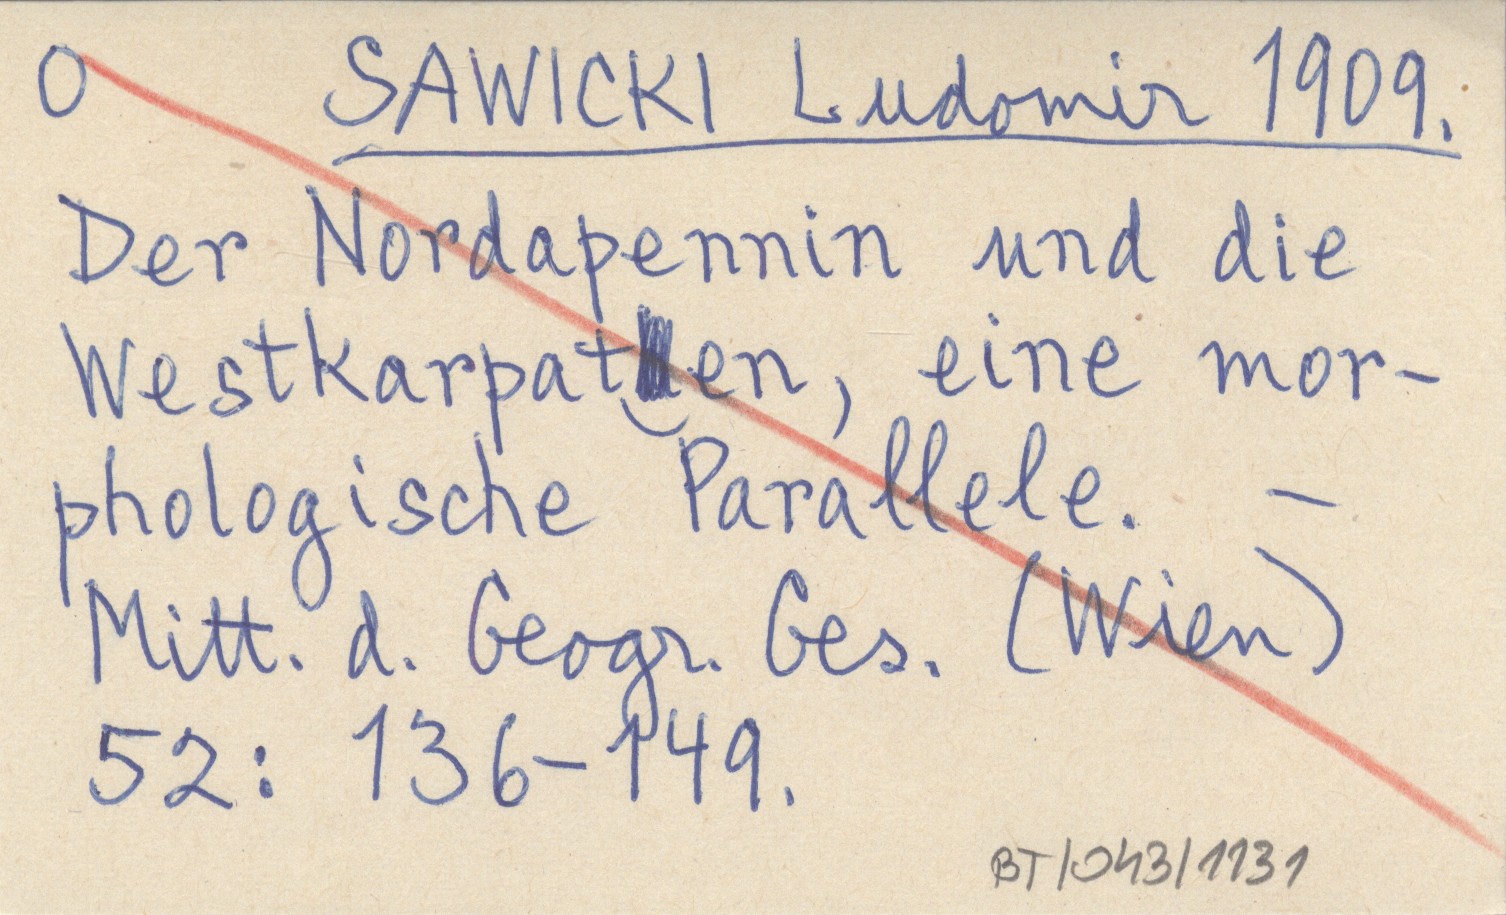 O SAWICKI Ludomir 1909.
Der Nordapennin und die
Westkarpaten, eine mor-
phologische Parallele. –
Mitt. d. Geogr. Ges. (Wien)
52: 136–149.
BT/043/1131